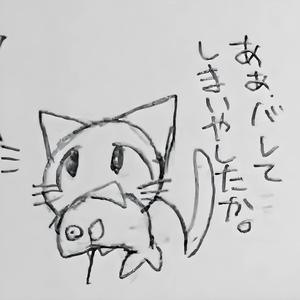 あぁ、バレて
しまいやしたか。